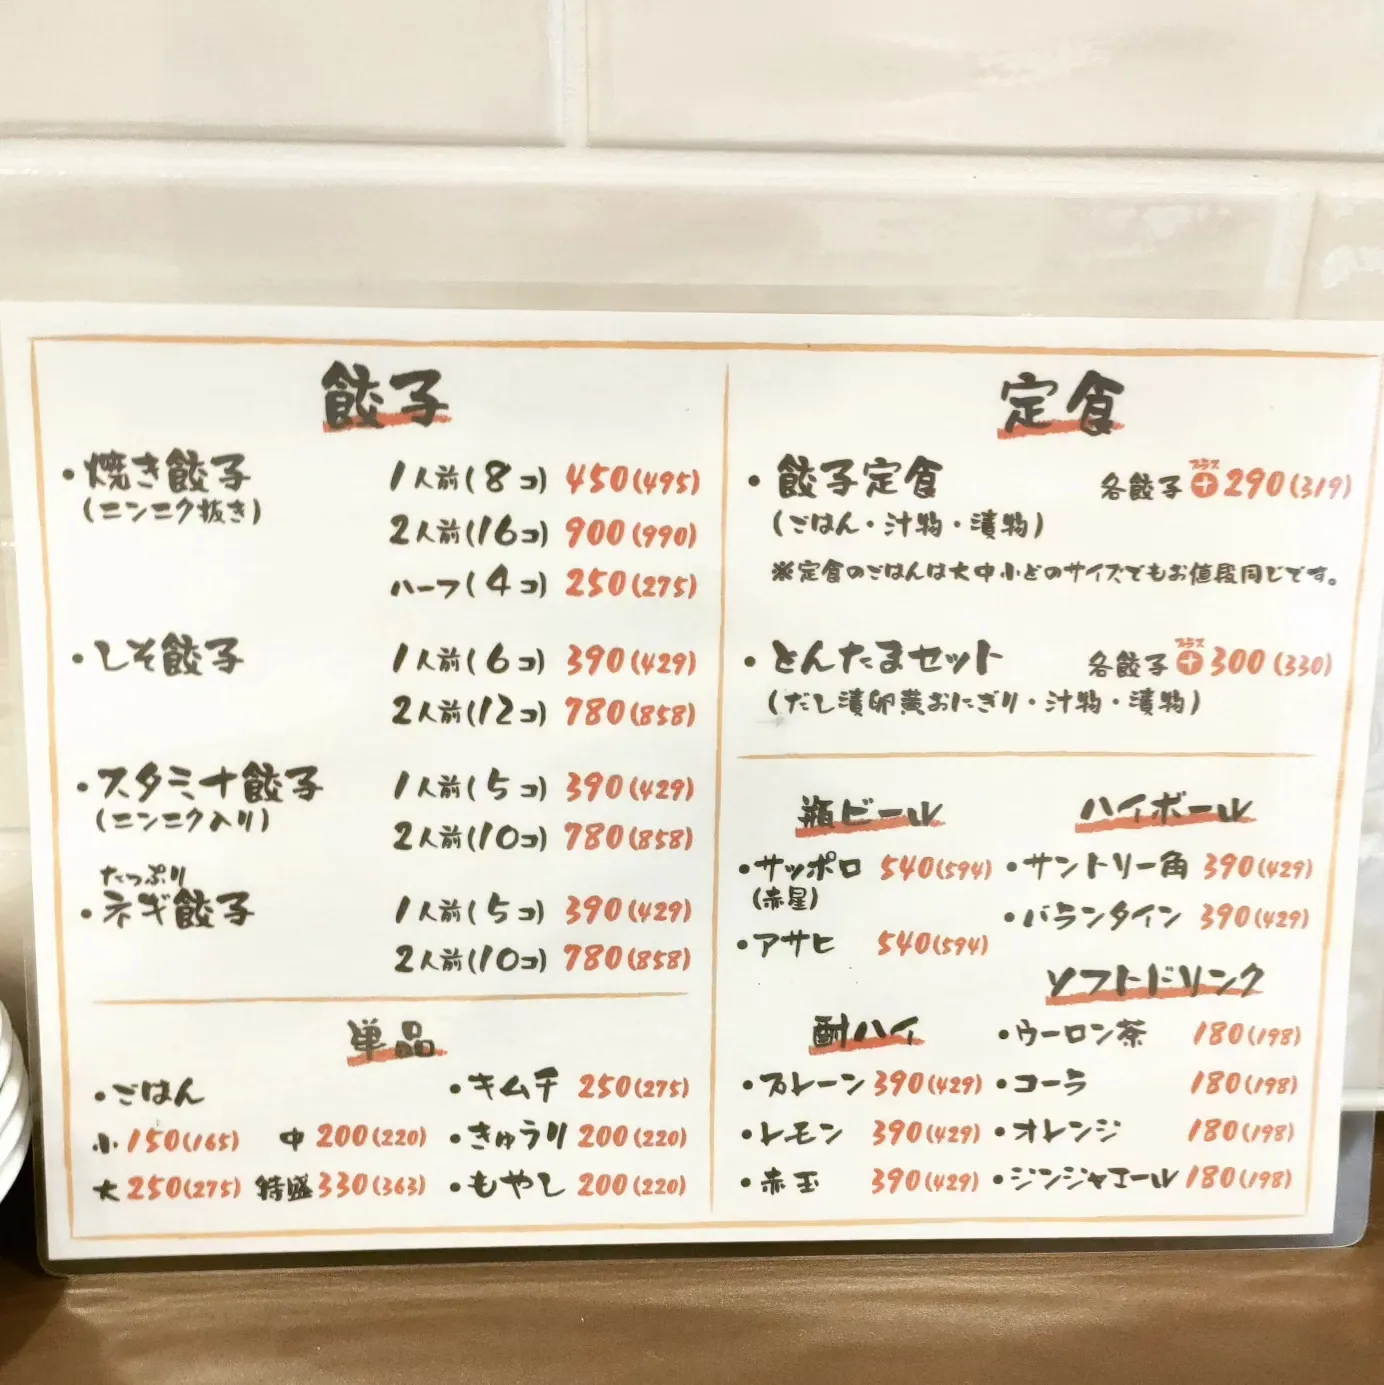 餃子
・焼き餃子 1人前(8コ) 450(495)
(ニンニク抜き)
2人前(16コ) 900(990)
ハーフ(4コ) 250(275)
・しそ餃子 1人前(6コ) 390(429)
2人前(12コ) 780(858)
・スタミナ餃子 1人前(5コ) 390(429)
(ニンニク入り)
2人前(10コ) 780(858)
たっぷり
・ネギ餃子 1人前(5コ) 390(429)
2人前(10コ) 780(858)
単品
・ごはん
小150(165) 中200(220)
大250(275) 特盛330(363)
・キムチ 250(275)
・きゅうり 200(220)
・もやし 200(220)
定食
プラス
・餃子定食 各餃子+290(319)
(ごはん・汁物・漬物)
※定食のごはんは大中小どのサイズでもお値段同じです。
プラス
・とんたまセット 各餃子+300(330)
(だし漬卵黄おにぎり・汁物・漬物)
瓶ビール
・サッポロ 540(594)
(赤星)
・アサヒ 540(594)
酎ハイ
・プレーン 390(429)
・レモン 390(429)
・赤玉 390(429)
ハイボール
・サントリー角 390(429)
・バランタイン 390(429)
ソフトドリンク
・ウーロン茶 180(198)
・コーラ 180(198)
・オレンジ 180(198)
・ジンジャエール 180(198)